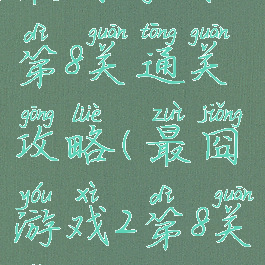 dì guān tōng guān
第8关通关
gōng lüè zuì jiǒng
攻略(最囧
yóu xì dì guān
游戏2第8关